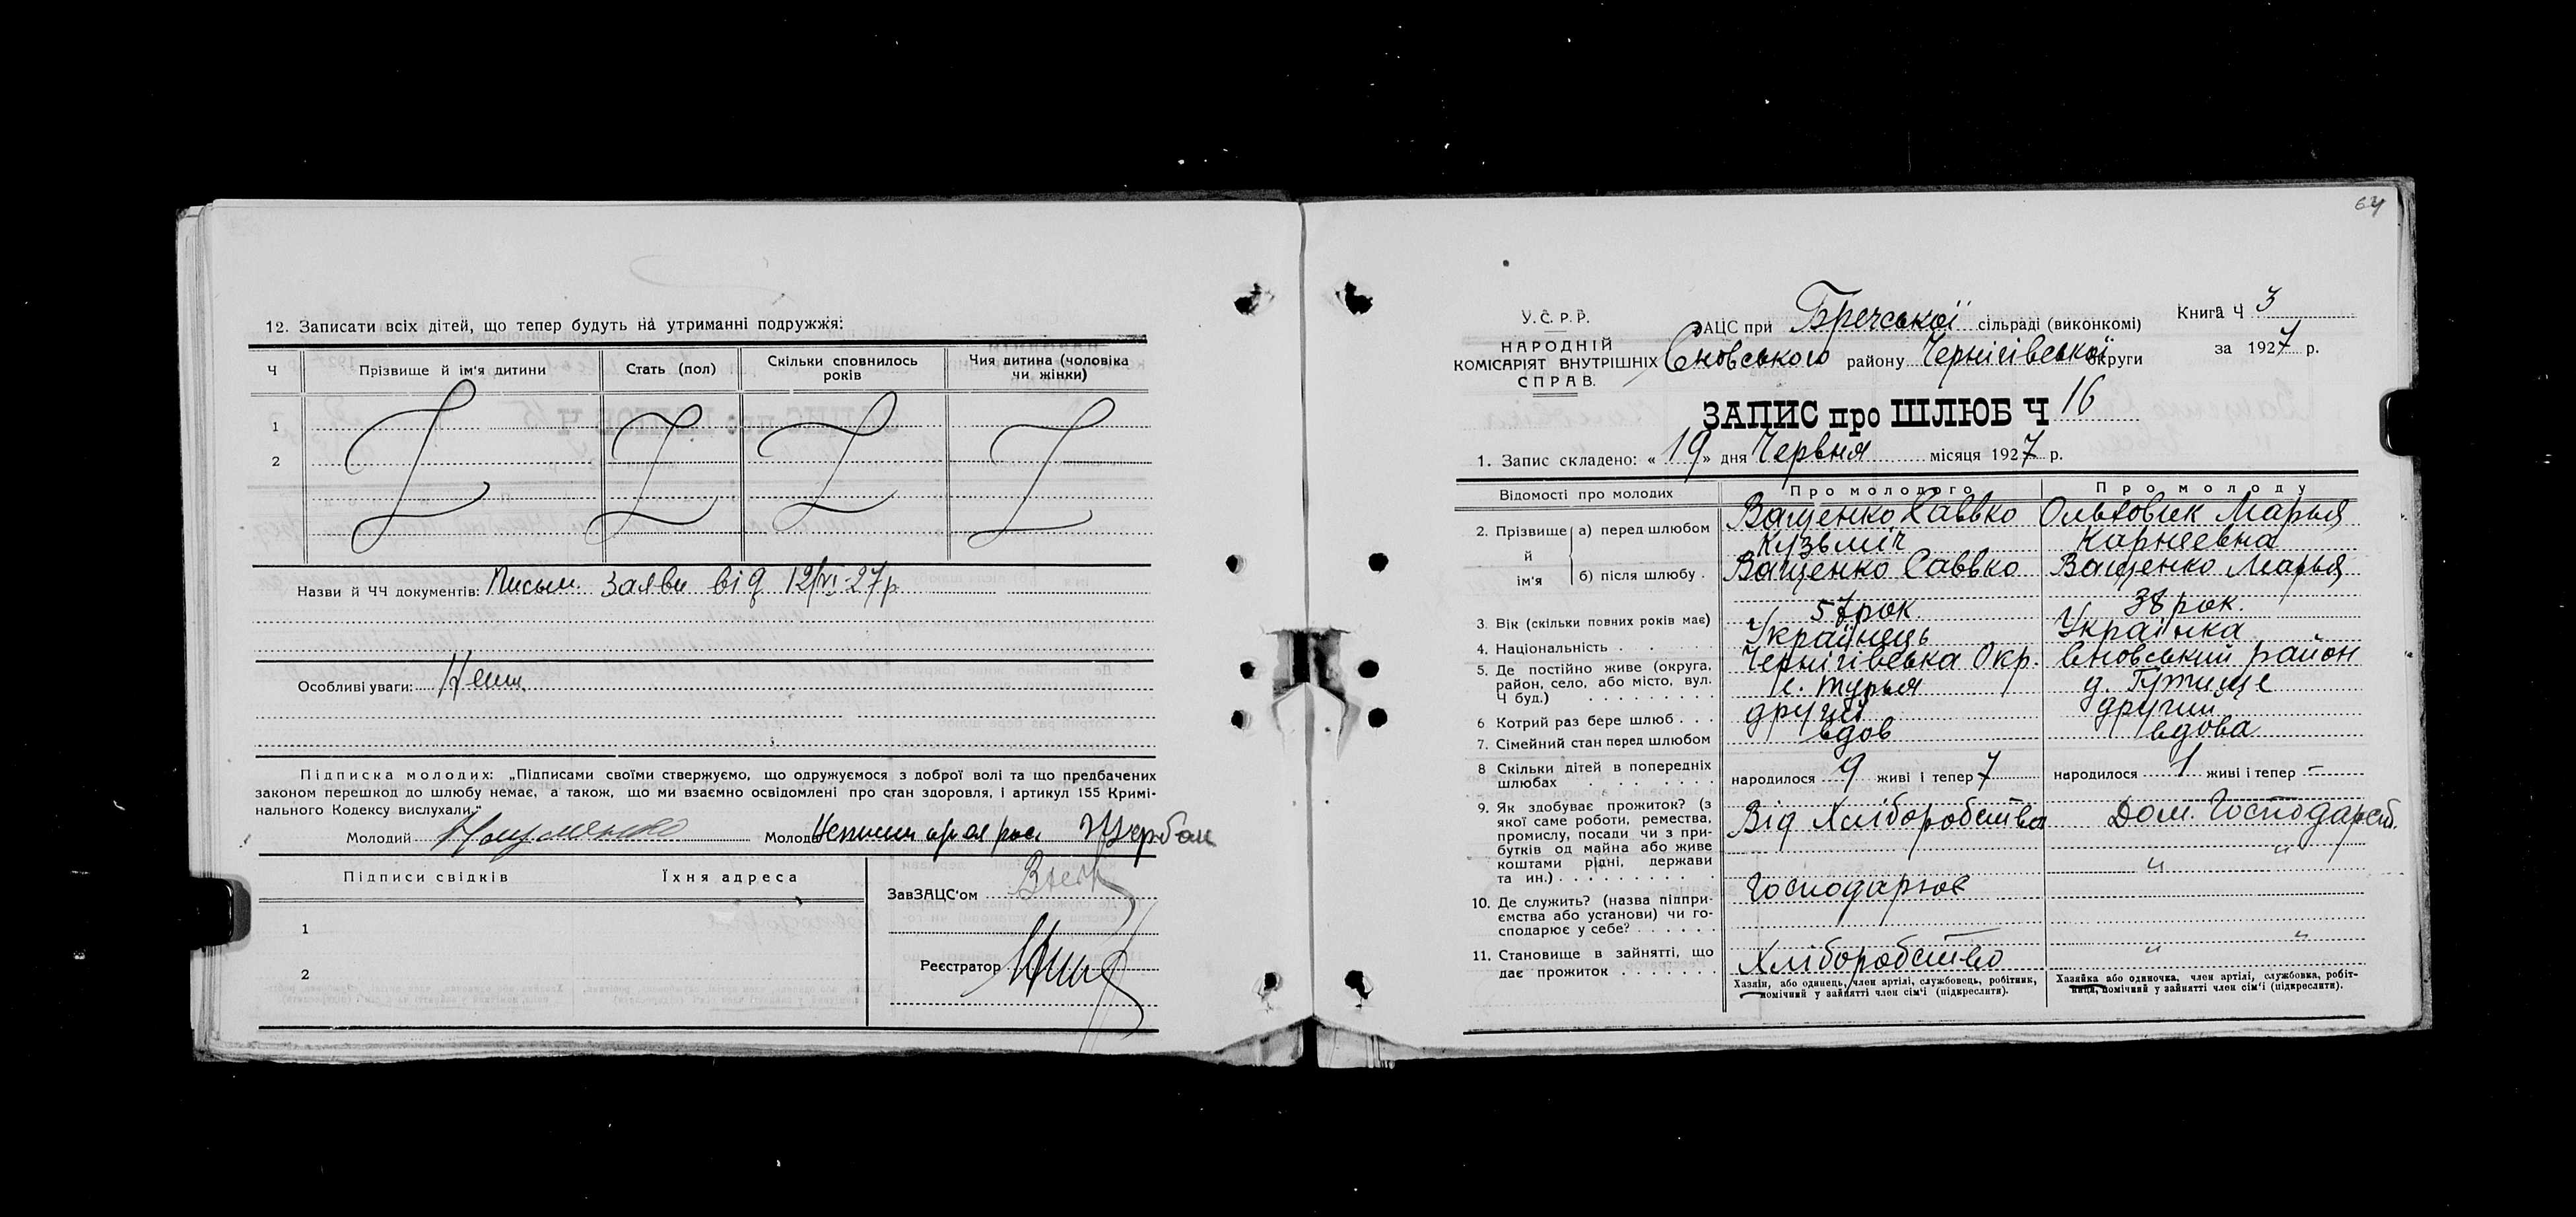 12. Записати всіх дітей, що тепер будуть на утриманні подружжя:
Ч Прізвище й ім'я дитини Стать (пол) Скільки сповнилось років Чия дитина (чоловіка чи жінки)
1
2
Назви й ЧЧ документів: Письм. заяви від 12/VI-27р
Особливі уваги:
Підписка молодих: „Підписами своїми ствержуємо, що одружуємося з доброї волі та що предбачених
законом перешкод до шлюбу немає, а також, що ми взаємно освідомлені про стан здоровля, і артикул 155 Кримі-
нального Кодексу вислухали.“
Молодий Молода
Підписи свідків Їхня адреса
ЗавЗАЦС'ом
1
Реєстратор
2
64
У.С.Р.Р.
НАРОДНІЙ
КОМІСАРІЯТ ВНУТРІШНІХ
СПРАВ.
ЗАЦС при Бречської сільраді (виконкомі)
Сновського району Чернігівської округи
Книга Ч 3
за 1927 р.
ЗАПИС про ШЛЮБ Ч 16
1. Запис складено: « 19 » дня Червня місяця 1927 р.
Відомості про молодих Про молодого Про молоду
2. Прізвище й ім'я а) перед шлюбом Ващенко Саввко Кузьміч Ольховик Марья Карнеевна
б) після шлюбу Ващенко Саввко Ващенко Марья
3. Вік (скільки повних років має) 57 рок 38 рок.
4. Національність Українець Українка
5. Де постійно живе (округа, район, село, або місто, вул. Ч буд.) Чернігівська Окр. с. Турья Сновський район д. Гутище
6 Котрий раз бере шлюб другий другий
7. Сімейний стан перед шлюбом вдов вдова
8 Скільки дітей в попередніх шлюбах народилося 9 живі і тепер 7 народилося 1 живі і тепер –
9. Як здобуває прожиток? (з якої саме роботи, ремества, промислу, посади чи з прибутків од майна або живе коштами рідні, держави та ин.) Від Хліборобства Дом. Господарств.
10. Де служить? (назва підпри-ємства або установи) чи го-сподарює у себе? Господарює " "
11. Становище в зайнятті, що дає прожиток Хліборобство " "
Хазяїн, або одинець, член артілі, службовець, робітник, помічний у зайнятті член сім'ї (підкреслити).
Хазяйка або одиночка, член артілі, службовка, робіт-ниця, помічний у зайнятті член сім'ї (підкреслити).